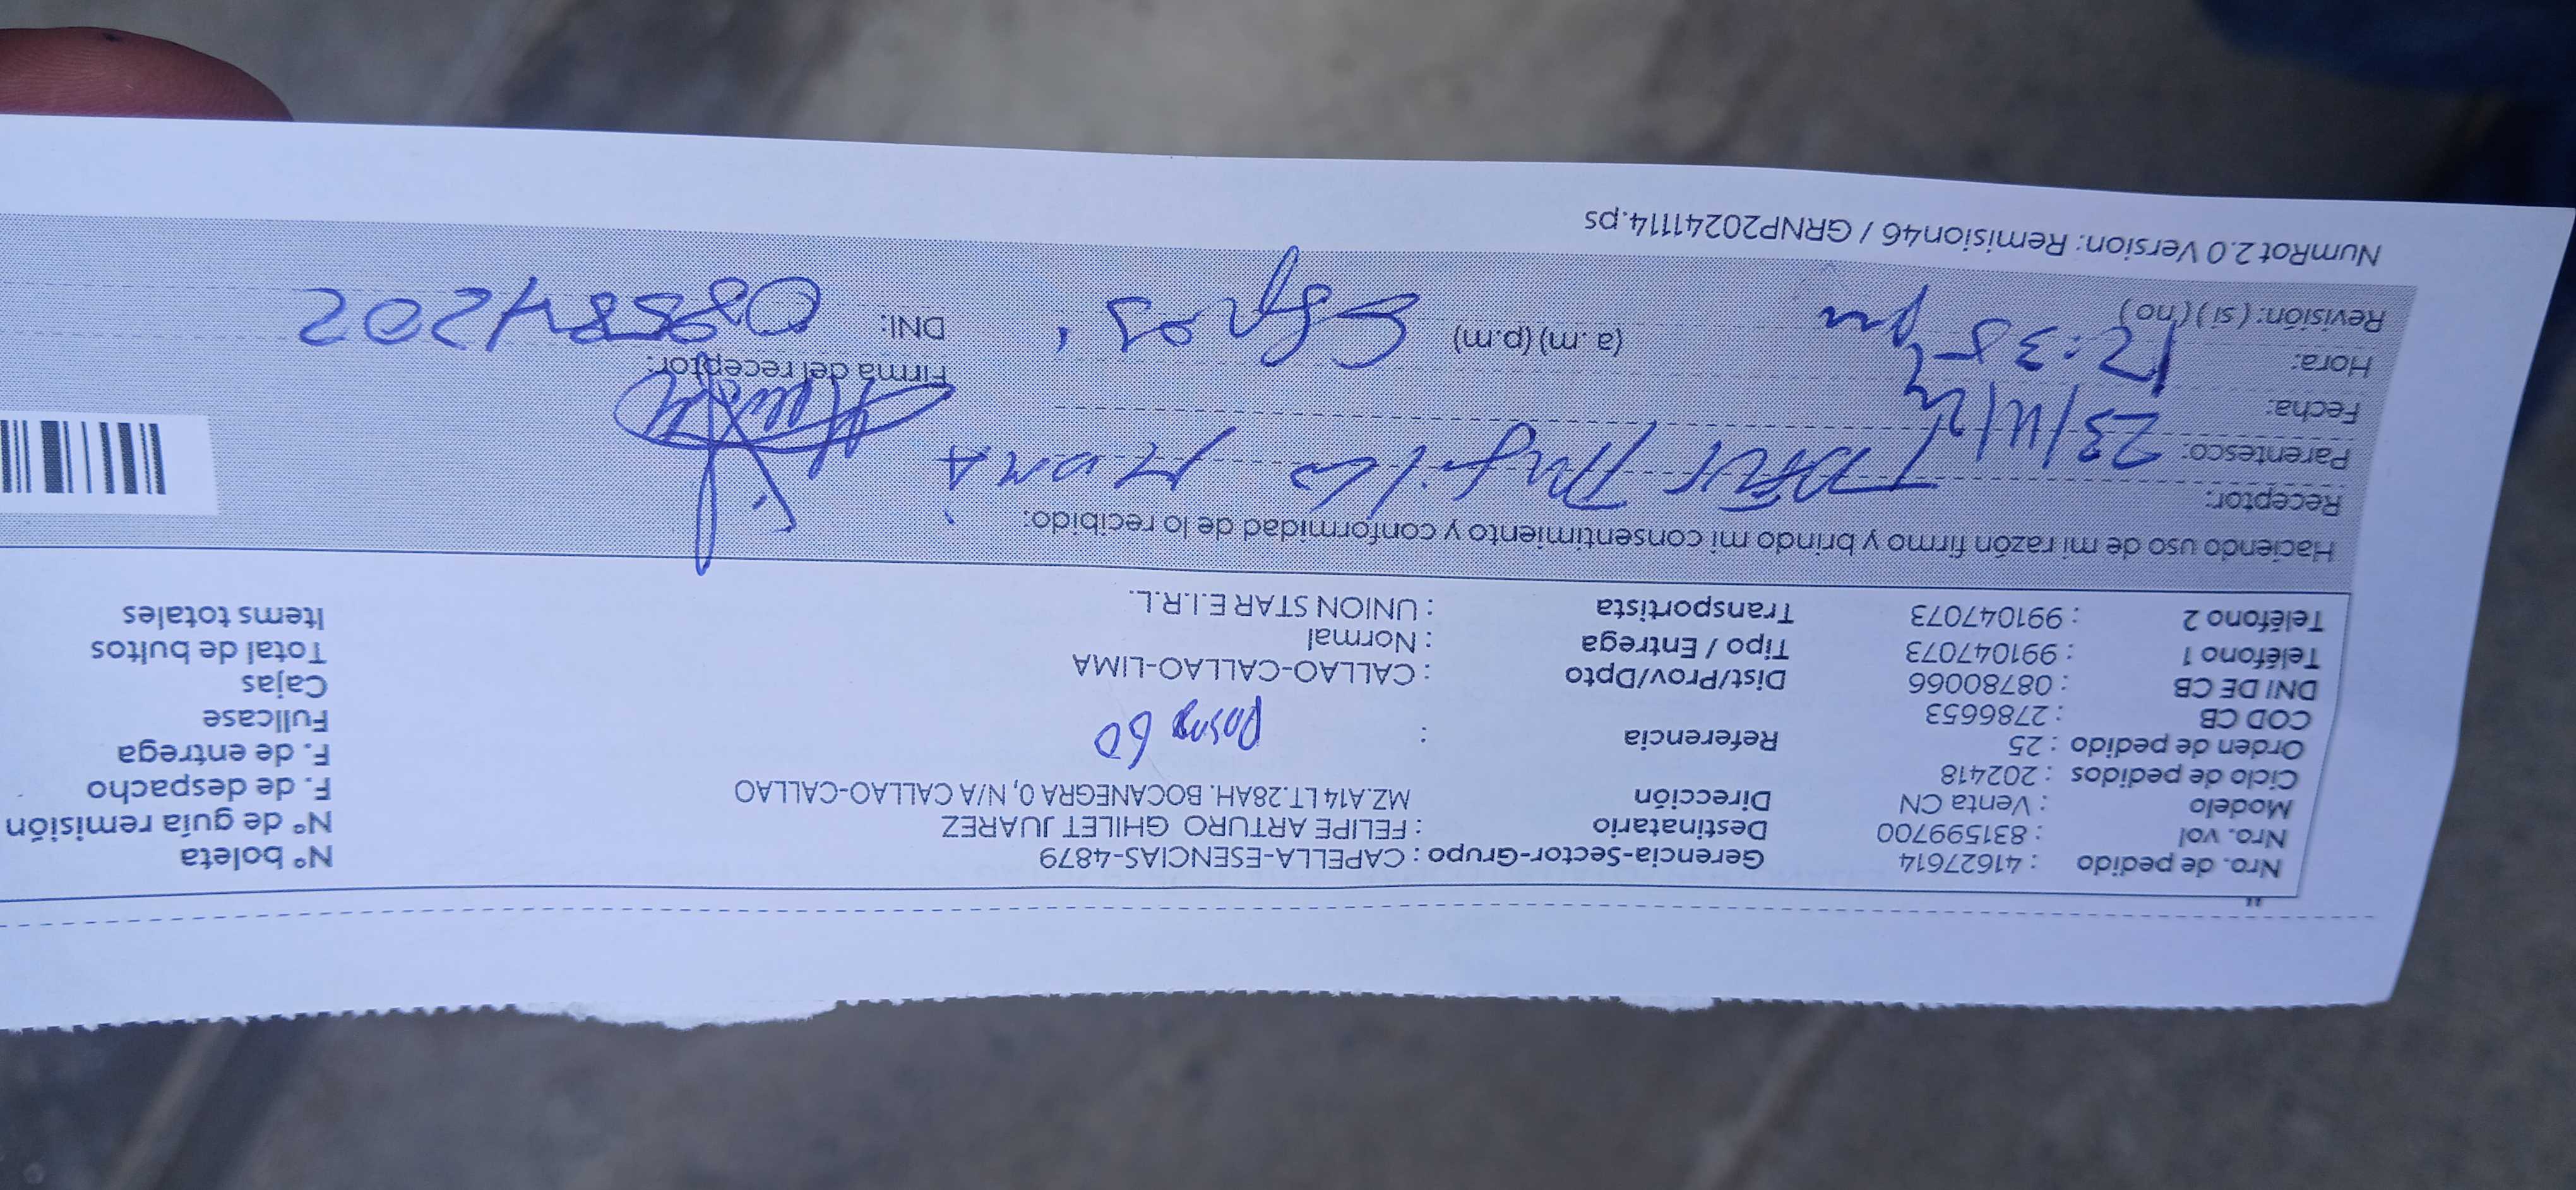 Nro. de pedido : 41627614 Gerencia-Sector-Grupo : CAPELLA-ESENCIAS-4879 N° boleta
Nro. vol : 831599700 Destinatario : FELIPE ARTURO GHILET JUAREZ N° de guía remisión
Modelo : Venta CN Dirección MZ.A14 LT.28AH. BOCANEGRA 0, N/A CALLAO-CALLAO F. de despacho
Ciclo de pedidos : 202418 F. de entrega
Orden de pedido : 25 Referencia : 60 Fullcase
COD CB : 2786653 Cajas
DNI DE CB : 08780066 Dist/Prov/Dpto : CALLAO-CALLAO-LIMA Total de bultos
Teléfono 1 : 991047073 Tipo / Entrega : Normal Items totales
Teléfono 2 : 991047073 Transportista : UNION STAR E.I.R.L.
Haciendo uso de mi razón firmo y brindo mi consentimiento y conformidad de lo recibido:
Receptor:
Parentesco:
Fecha: 23/11/24
Hora: 12:35 pm (a.m) (p.m) Firma del receptor:
Revisión: (si) (no) DNI: 08584202
NumRot 2.0 Version: Remision46 / GRNP20241114.ps